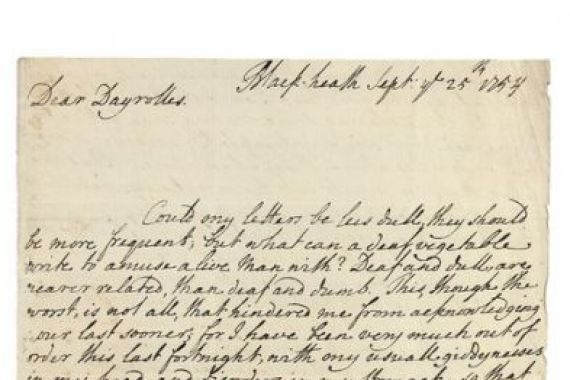 Black-heath Sept: ye 25th 1754
Dear Dayrolles.
Could my letters be less dull, they should
be more frequent; but what can a deaf vegetable
write to amuse a live man with? Deaf and dull, are
nearer related, than deaf and dumb. This, though the
worst, is not all, that hindered me from acknowledging
your last sooner; for I have been very much out of
order this last fortnight, with my usuall giddynesses
in my head, and disorders in my stomach, so that